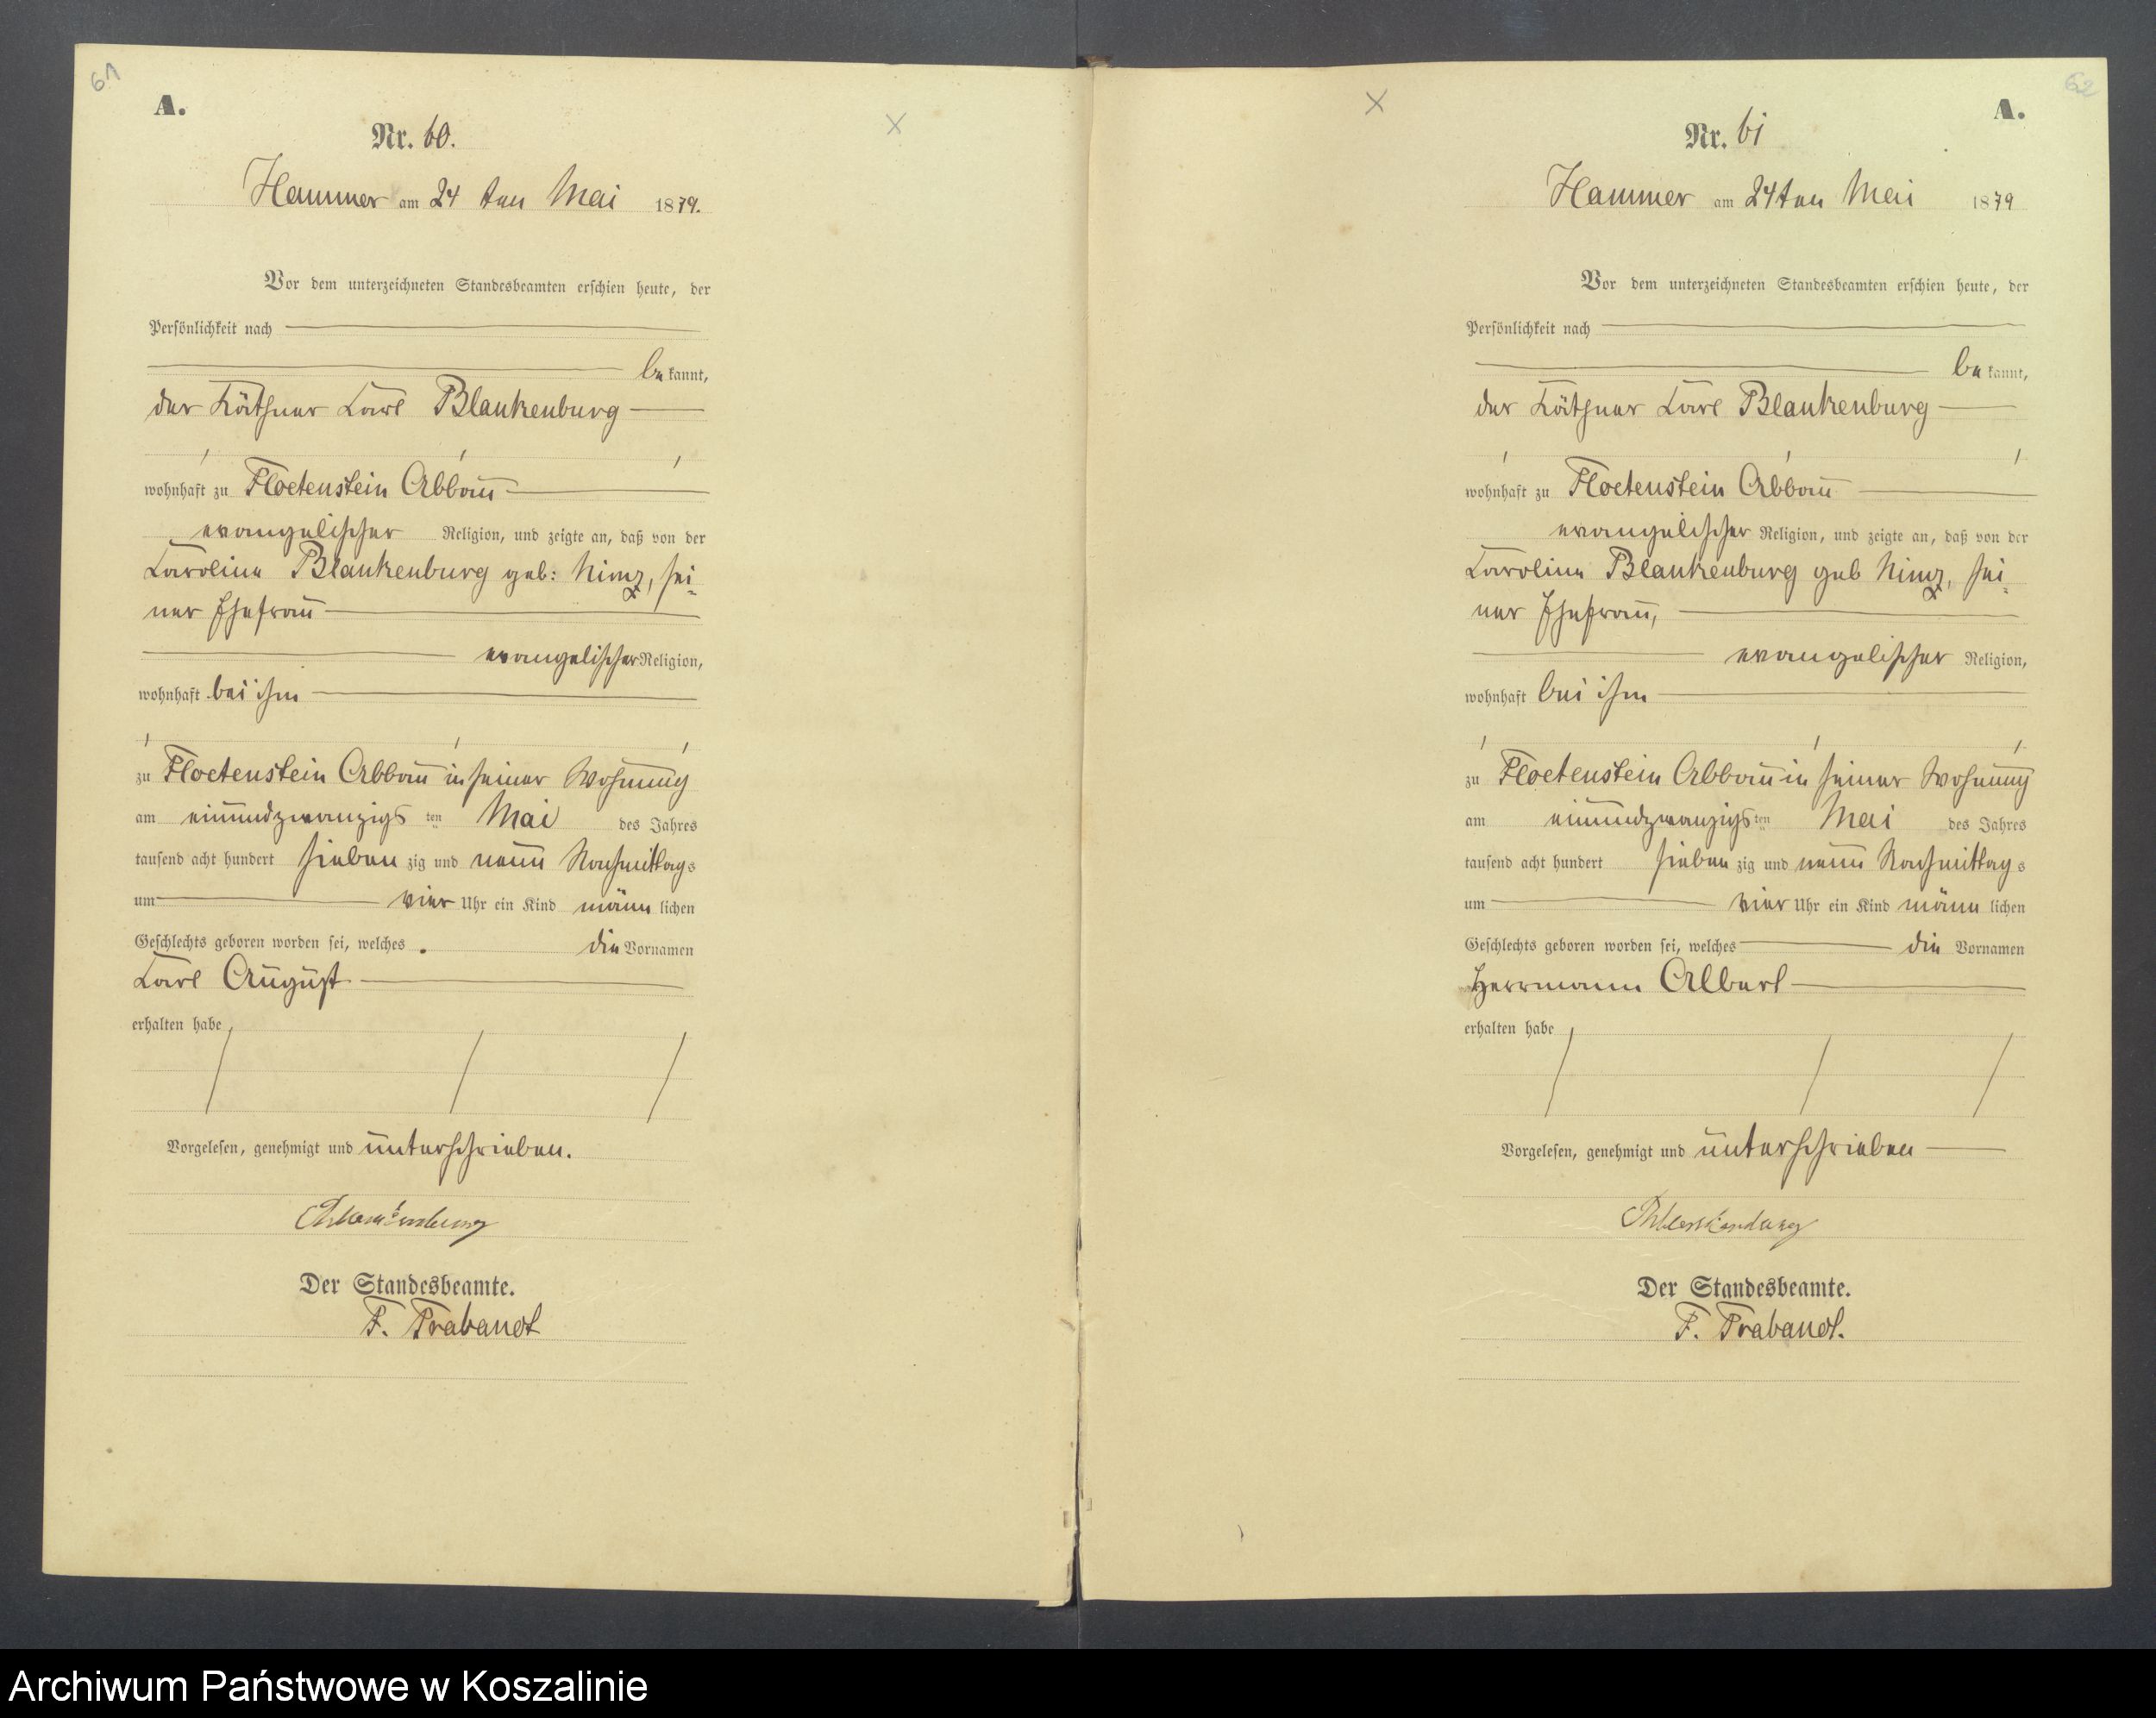 61
A.
Nr. 60.
Hammer am 24 ten Mai 1879.
Vor dem unterzeichneten Standesbeamten erschien heute, der
Persönlichkeit nach
be kannt,
der Käthner Carl Blankenburg
wohnhaft zu Floetenstein Abbau
evangelischer Religion, und zeigte an, daß von der
Caroline Blankenburg geb: Nimz, sei-
ner Ehefrau
evangelischer Religion,
wohnhaft bei ihm
zu Floetenstein Abbau in seiner Wohnung
am einundzwanzigs ten Mai des Jahres
tausend acht hundert sieben zig und neun Nachmittags
um vier Uhr ein Kind männ lichen
Geschlechts geboren worden sei, welches die Vornamen
Carl August
erhalten habe
Vorgelesen, genehmigt und unterschrieben.
Blankenburg
Der Standesbeamte.
F. Trabandt
62
A.
Nr. 61
Hammer am 24ten Mai 1879
Vor dem unterzeichneten Standesbeamten erschien heute, der
Persönlichkeit nach
be kannt,
der Käthner Carl Blankenburg
wohnhaft zu Floetenstein Abbau
evangelischer Religion, und zeigte an, daß von der
Caroline Blankenburg geb Nimz, sei-
ner Ehefrau,
evangelischer Religion,
wohnhaft bei ihm
zu Floetenstein Abbau in seiner Wohnung
am einundzwanzigs ten Mai des Jahres
tausend acht hundert sieben zig und neun Nachmittag s
um vier Uhr ein Kind männ lichen
Geschlechts geboren worden sei, welches die Vornamen
Herrmann Albert
erhalten habe
Vorgelesen, genehmigt und unterschrieben
Blankenburg
Der Standesbeamte.
F. Trabandt.
Archiwum Państwowe w Koszalinie